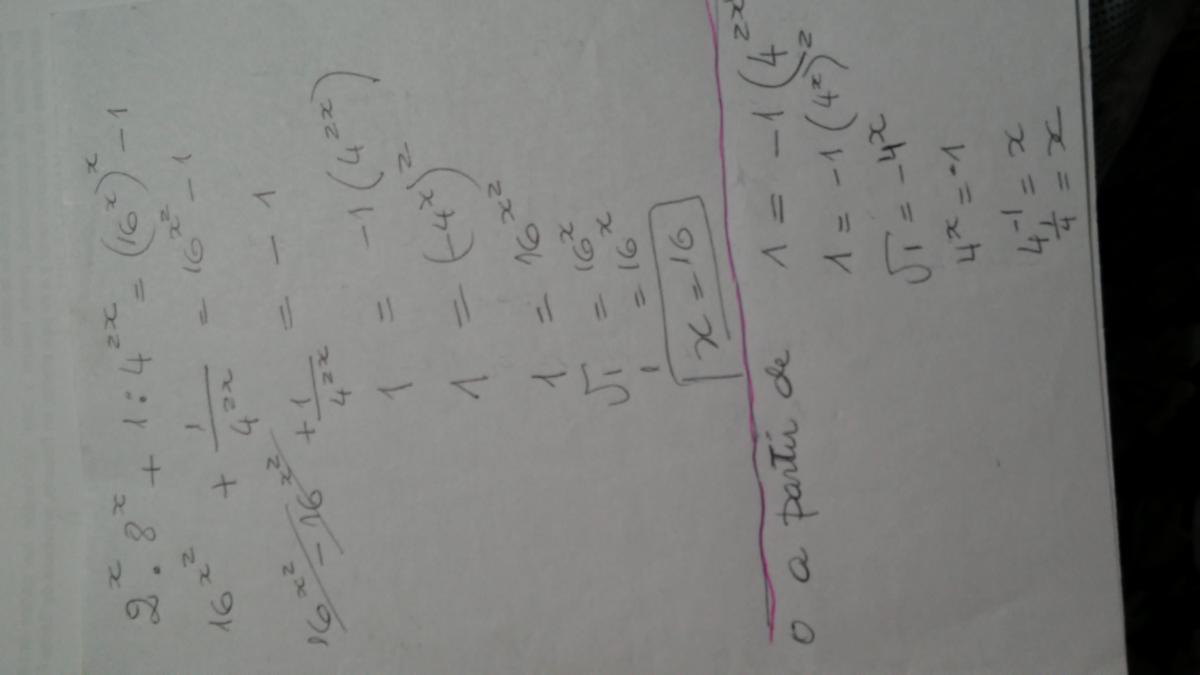 2^x . 8^x + 1 : 4^{2x} = (16^x)^x - 1
16^{x^2} + \frac{1}{4^{2x}} = 16^{x^2} - 1
16^{x^2} - 16^{x^2} + \frac{1}{4^{2x}} = - 1
1 = -1 (4^{2x})
1 = (-4^x)^2
1 = 16^{x^2}
√1 = 16^x
1 = 16^x
x = 16
o a partir de 1 = -1 (4^{2x}
1 = -1 (4^x)^2
√1 = -4^x
4^x = -1
4^{-1} = x
4^{\frac{1}{4}} = x